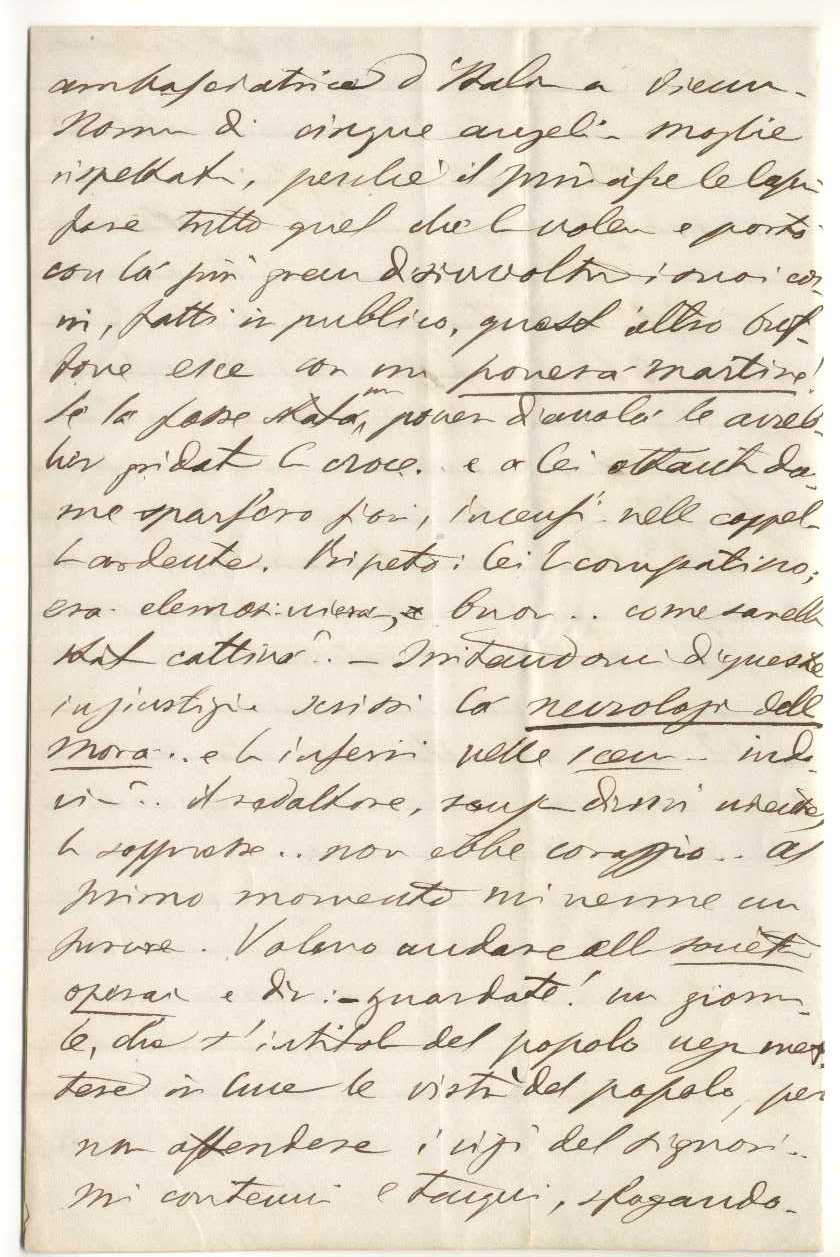 ambasciatrice d'Italia a Vienna
Nonna di cinque angeli - moglie
rispettata, perchè il principe le lascia
fare tutto quel che la voleva e portò
con la più gran disinvoltura i suoi cor-
ni, fatti in pubblico, quest'altro
esce con un povera martire!
Se la fosse stata, un povera diavola le avreb-
ber gridato la croce .. e a lei ottanta da-
me sparsero fiori, incensi - nella cappel-
la ardente. Ripeto: lei la compatirono;
era elemosiniera, e buona .. come sarebbe
stato cattiva? .. - Irritandomi di queste
ingiustizie scrissi la necrologia della
Mora .. e la inserii nelle scene .. indo-
vina? .. il redattore, senza dirmi niente,
la soppresse .. non ebbe coraggio .. al
primo momento mi venne un
furore. Volevo andare alla società
operaia e dir: - guardate! un giorna-
le, che s'intitola del popolo nega met-
tere in luce le virtù del popolo, per
non offendere i vizi del signori ..
mi contenni e tacqui, sfogando-